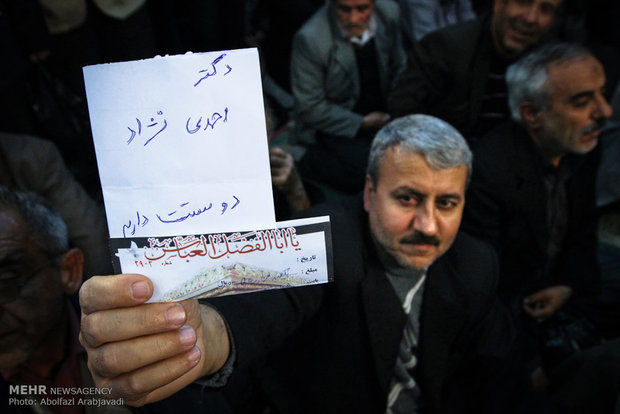 دکتر
احمدی نژاد
دوستت داریم
یا ابا الفضل العباس
تاریخ:
مبلغ:
MEHR NEWSAGENCY
Photo: Abolfazl Javadi